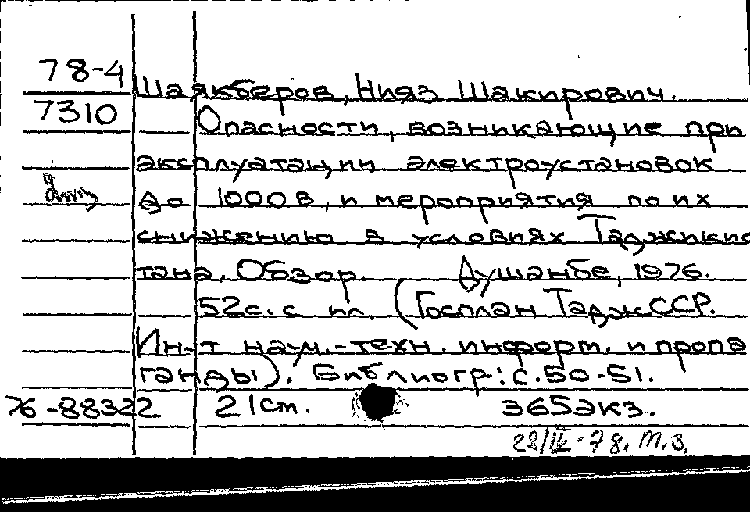 78-4 Шаякберов, Нияз Шакирович.
7310 Опасности, возникающие при
эксплуатации электроустановок
до 1000 В, и мероприятия по их
снижению в условиях Таджикис
тана. Обзор. Душанбе, 1976.
52 с. с ил. (Госплан Тадж ССР.
Ин-т науч.-техн. информ. и пропа
ганды). Библиогр: с. 50-51.
76-88322 21 см. 365 экз.